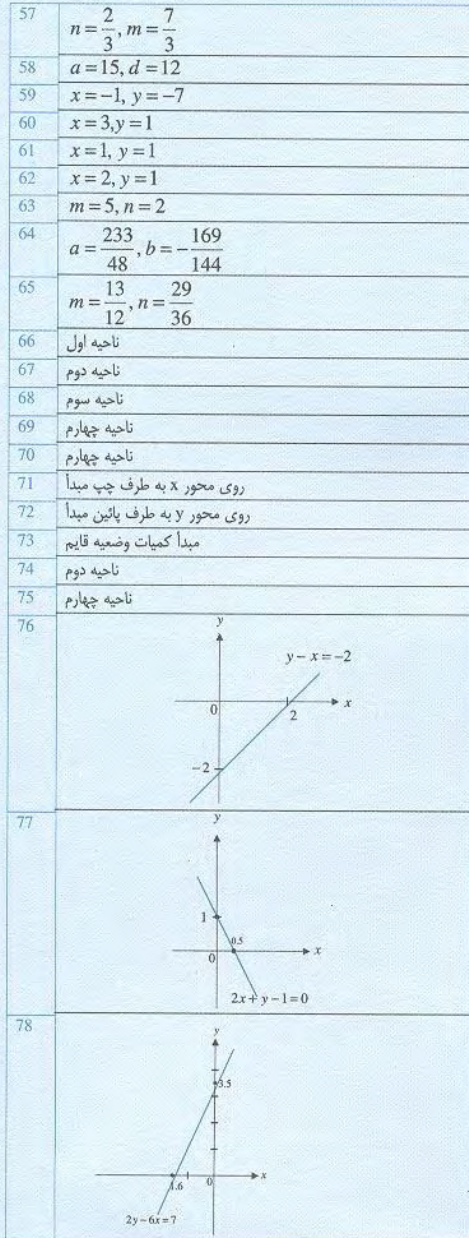 57 n = 2/3, m = 7/3
58 a = 15, d = 12
59 x = −1, y = −7
60 x = 3, y = 1
61 x = 1, y = 1
62 x = 2, y = 1
63 m = 5, n = 2
64 a = 233/48, b = −169/144
65 m = 13/12, n = 29/36
66 ناحیه اول
67 ناحیه دوم
68 ناحیه سوم
69 ناحیه چهارم
70 ناحیه چهارم
71 روی محور x به طرف چپ مبدأ
72 روی محور y به طرف پائین مبدأ
73 مبدأ کمیات وضعیه قایم
74 ناحیه دوم
75 ناحیه چهارم
76
y
y − x = −2
0
2
x
−2
77
y
1
0.5
0
x
2x + y − 1 = 0
78
y
3.5
1.6
0
x
2y − 6x = 7